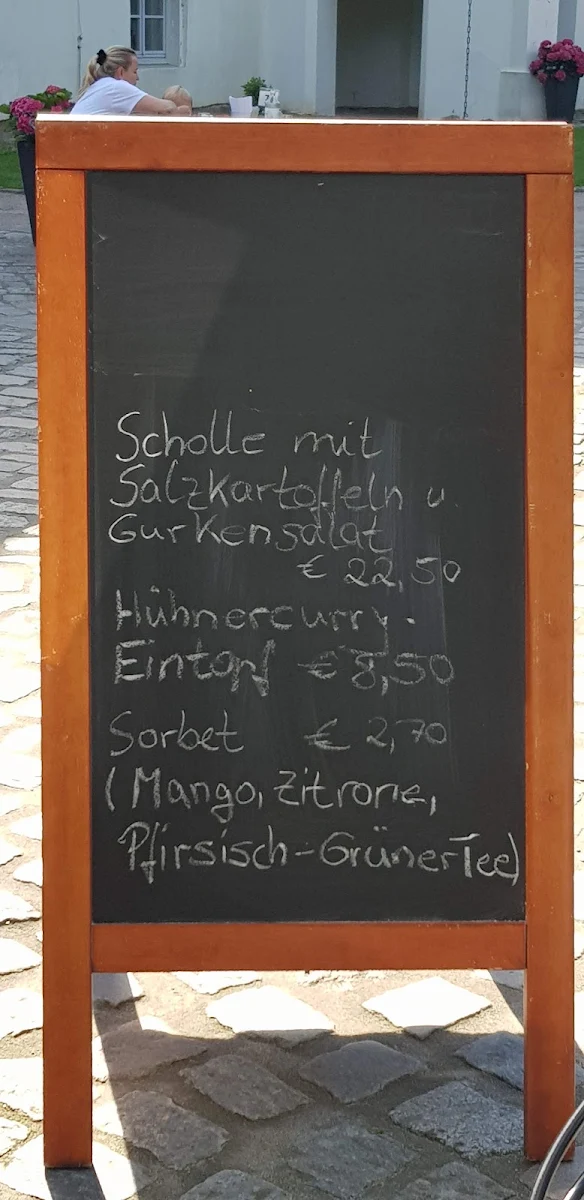 Scholle mit
Salzkartoffeln u.
Gurkensalat
€ 22,50
Hühnercurry-
Eintopf € 8,50
Sorbet € 2,70
(Mango, Zitrone,
Pfirsisch-Grüner Tee)